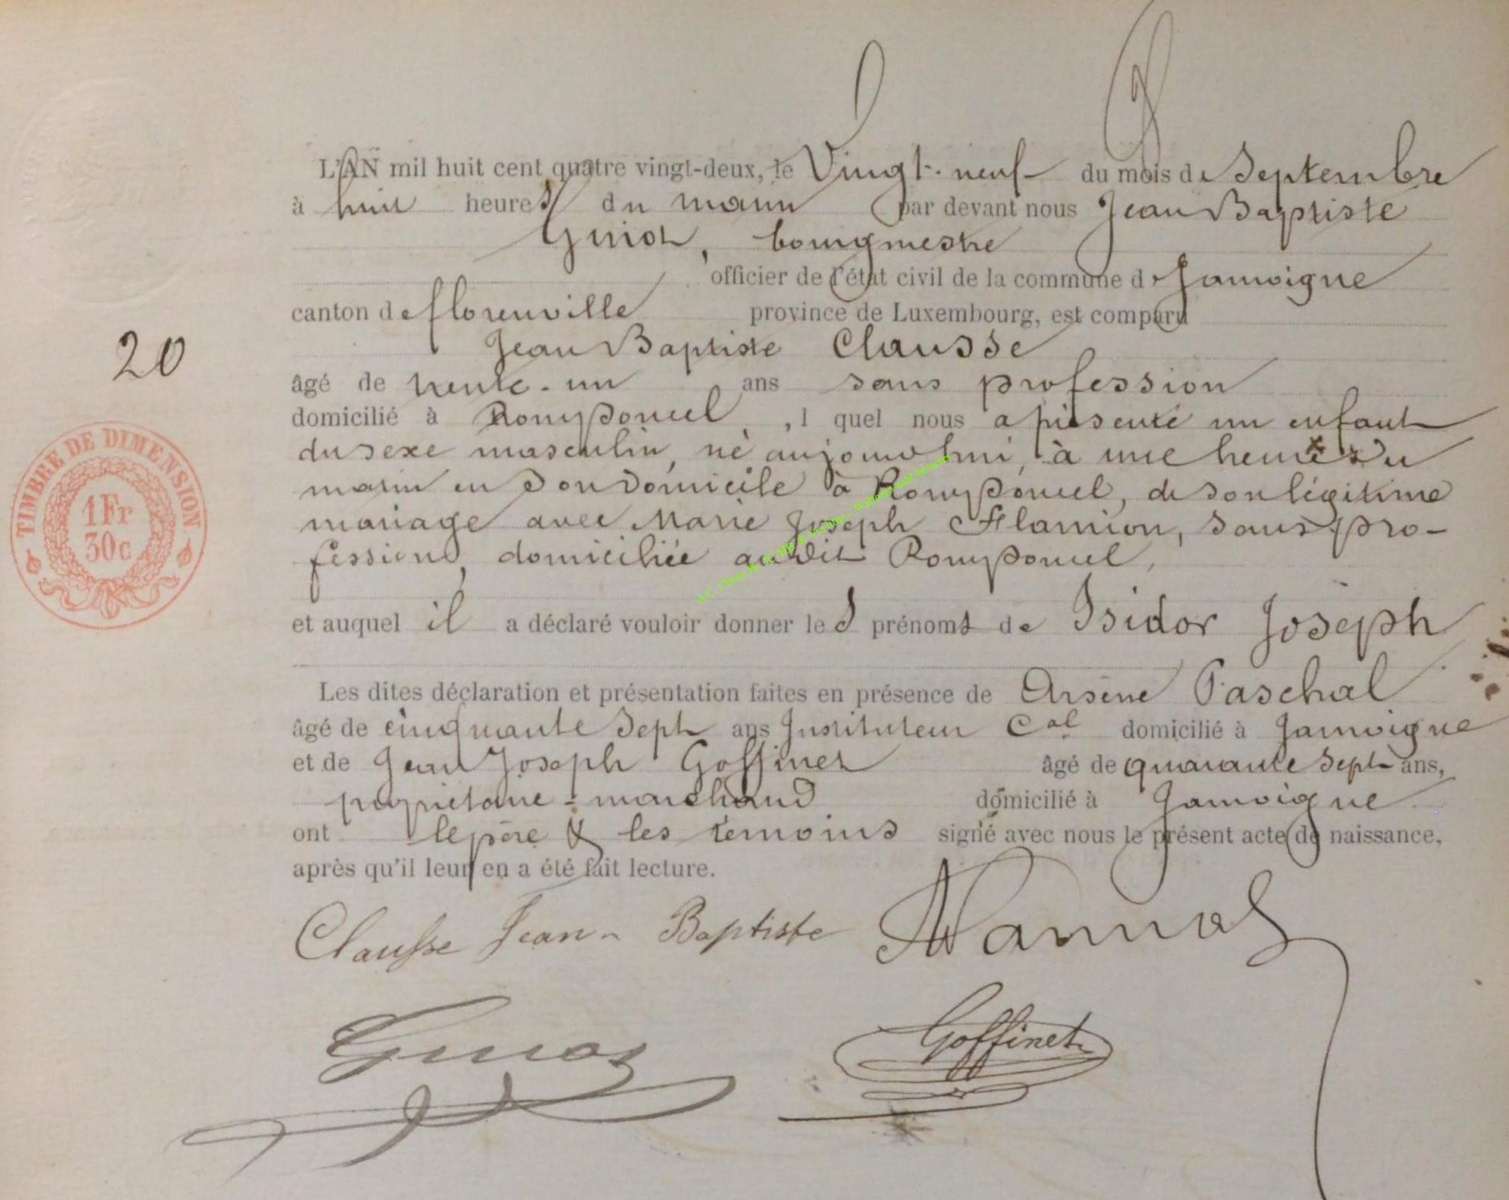 L'AN mil huit cent quatre vingt-deux, le Vingt-neuf du mois de Septembre
à huit heures du matin par devant nous Jean Baptiste
Guiot, bourgmestre
officier de l'état civil de la commune de Jamoigne
canton de florenville province de Luxembourg, est comparu
Jean Baptiste Clausse
20
âgé de trente-un ans sans profession
domicilié à Romponcel, l quel nous a présenté un enfant
du sexe masculin, né aujourd'hui, à une heure du
matin en son domicile à Romponcel, de son légitime
mariage avec Marie Joseph Flamion, sans pro-
fession, domiciliée audit Romponcel,
TIMBRE DE DIMENSION
1Fr
30c
et auquel il a déclaré vouloir donner les prénoms de Isidor Joseph
Les dites déclaration et présentation faites en présence de Arsène Paschal
âgé de cinquante sept ans Instituteur Cal domicilié à Jamoigne
et de Jean Joseph Goffinet âgé de quarante sept ans,
propriétaire-marchand domicilié à Jamoigne
ont le père & les témoins signé avec nous le présent acte de naissance,
après qu'il leur en a été fait lecture.
Clausse Jean-Baptiste
Guiot Goffinet